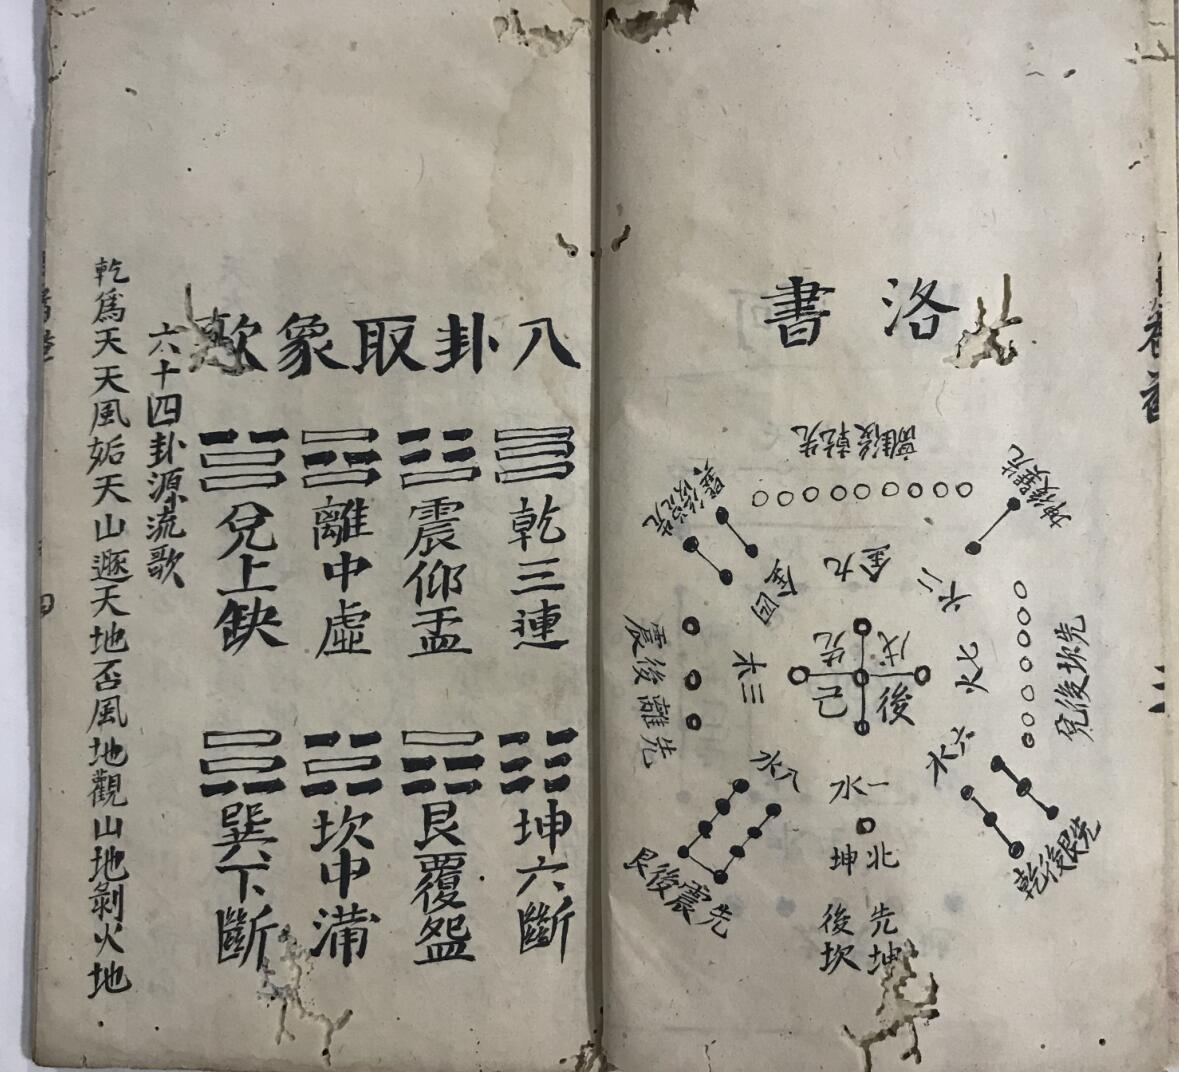 洛書
先乾後離
先巽後坤
先兌後巽
九金
四金
二六
七火
三木
先離後震
先坎後兌
戊
己
先
後
八水
六水
一水
北坤
先坤後坎
先震後艮
先艮後乾
八卦取象歌
乾三連
震仰盂
離中虛
兌上缺
坤六斷
艮覆盌
坎中滿
巽下斷
六十四卦源流歌
乾爲天天風姤天山遯天地否風地觀山地剝火地